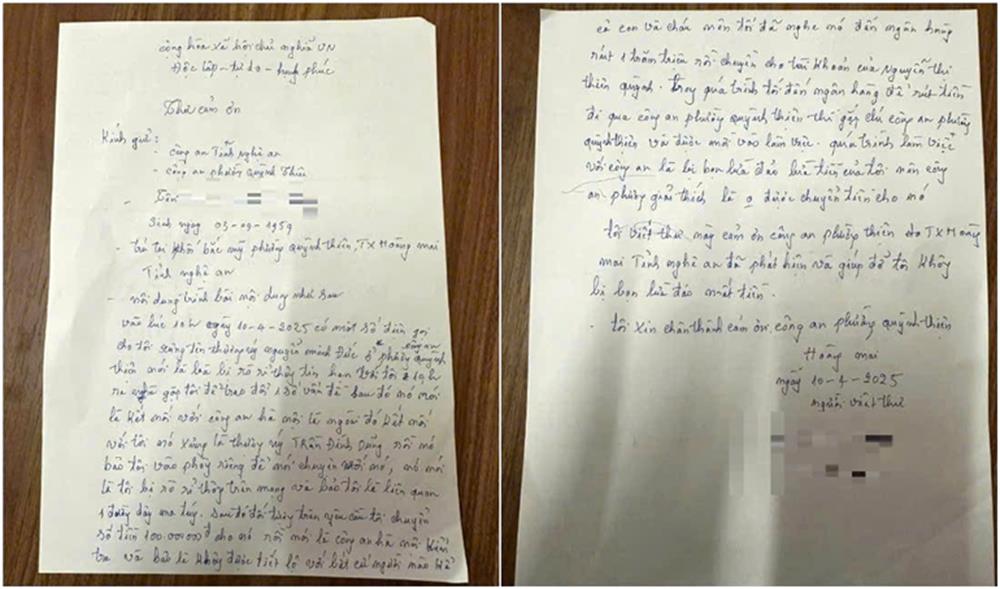 cộng hòa xã hội chủ nghĩa VN
Độc lập - tự do - hạnh phúc
Thư cảm ơn
Kính gửi:
- công an Tỉnh nghệ an
- công an phường Quỳnh Thiện
- Tên
Sinh ngày 03-09-1959
- trú tại khối bắc mỹ phường quỳnh thiện, TX Hoàng mai
Tỉnh nghệ an
- nôi dung trình bài nội dung như sau
vào lúc 10h ngày 10-4-2025 có một số điện gọi
cho tôi xưng tên thượng úy nguyễn mạnh Đức ở công an phường quỳnh
thiện nói là bà bị rò rỉ thông tin hẹn với tôi 19h
ra gặp tôi để trao đổi 1 số vấn đề sau đó nó nói
là kết nối với công an hà nội là người đó kết nối
với tôi nó xưng là thượng úy TRẦN Đình Dũng rồi nó
bảo tôi vào phòng riêng để nói chuyện với nó, nó nói
là tôi bị rò rỉ thông trên mạng và bảo tôi là liên quan
1 đường dây ma túy. sau đó đối tượng trên yêu cầu tôi chuyển
số tiền 100.000.000đ cho nó rồi nói là công an hà nôi kiểm
tra và bảo là không được tiết lộ với bất cứ người nào kể
cả con và cháu nên tôi đã nghe nó đến ngân hàng
rút 1 trăm triệu rồi chuyển cho tài khoản của Nguyễn thị
thiên quỳnh. Trong quá trình tôi đến ngân hàng để rút tiền
đi qua công an phường quỳnh thiện thì gặp chú công an phường
quỳnh thiện và được mời vào làm việc. quá trình làm việc
với công an là bị bọn lừa đảo lừa tiền của tôi nên công
an phường giải thích là o được chuyển tiền cho nó
tôi viết thư này cảm ơn công an phường thiện do TX Hoàng
mai Tỉnh nghệ an đã phát hiện và giúp đỡ tôi không
bị bọn lừa đảo mất tiền.
- tôi xin chân thành cảm ơn công an phường quỳnh thiện
Hoàng mai
ngày 10-4-2025
người viết thư